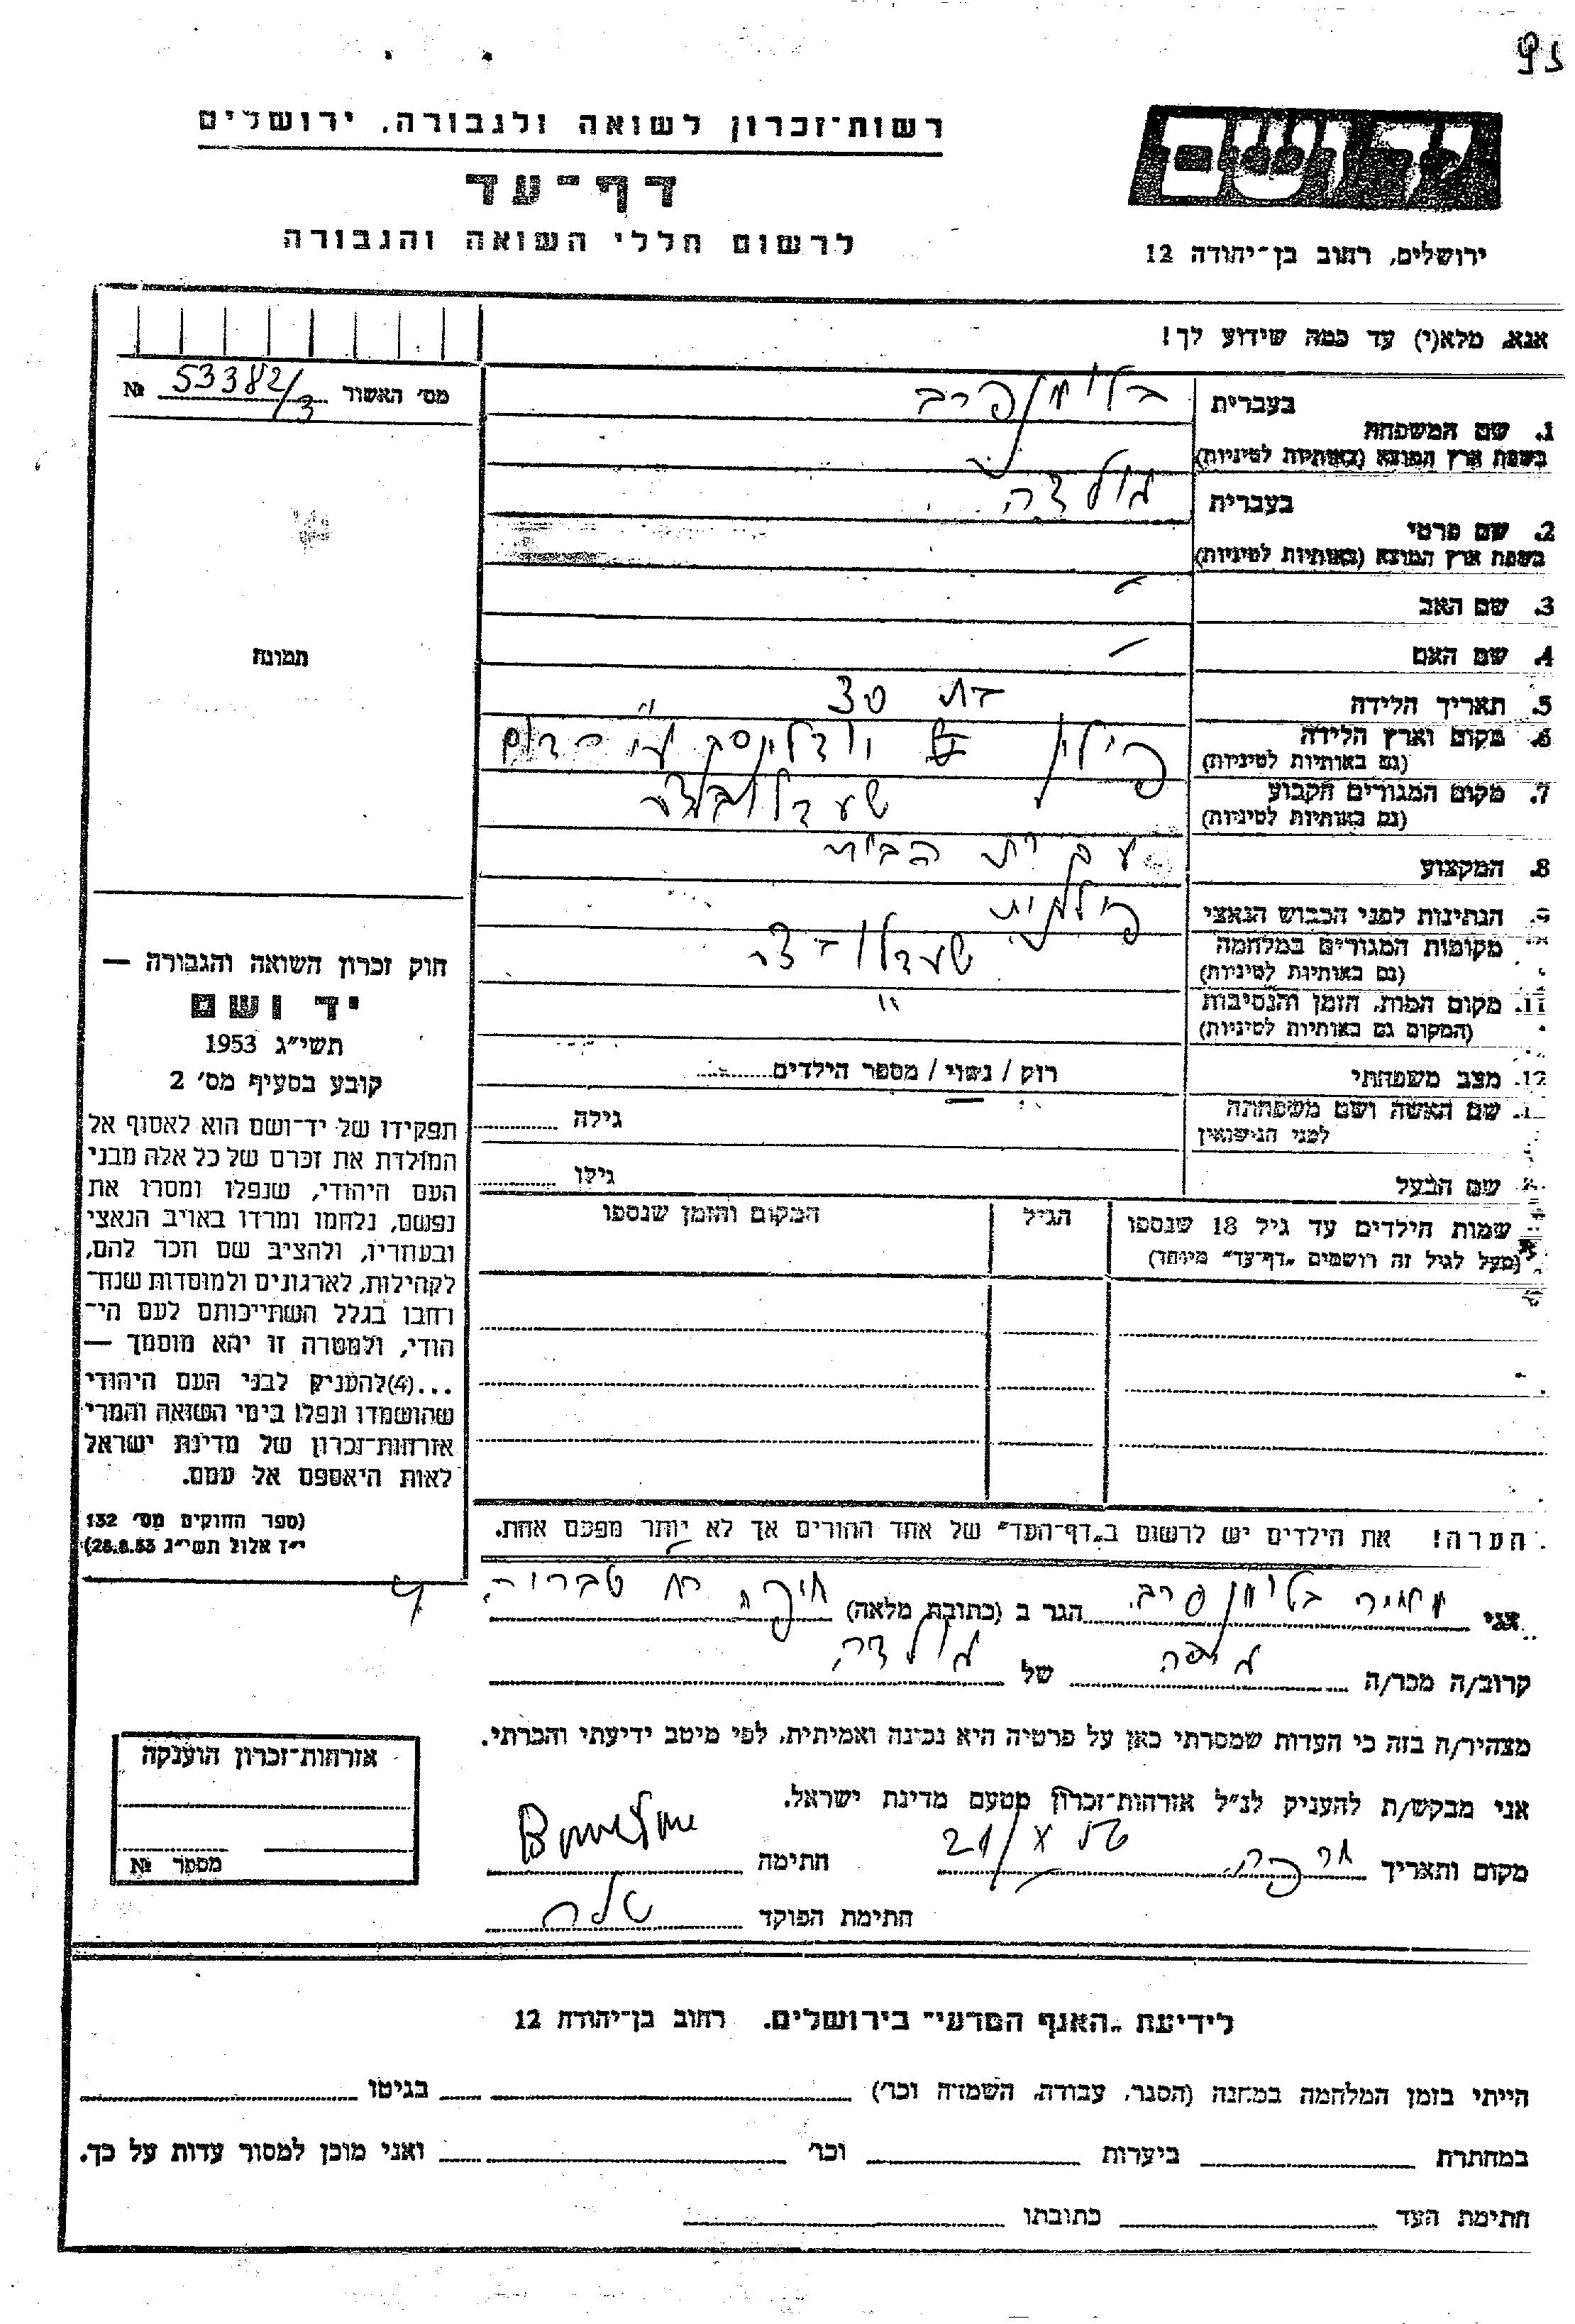 רשות־זכרון לשואה ולגבורה, ירושלים
דף־עד
לרשום חללי השואה והגבורה
ירושלים, רחוב בן־יהודה 12
אנא, מלא(י) עד כמה שידוע לך!
מס׳ האשור 53382/3 №
1. שם המשפחה
בעברית
בשפת ארץ המוצא (באותיות לטיניות)
2. שם פרטי
בעברית גולדה
בשפת ארץ המוצא (באותיות לטיניות)
3. שם האב –
4. שם האם –
5. תאריך הלידה בת 30
6. מקום וארץ הלידה
(גם באותיות לטיניות)
7. מקום המגורים הקבוע
(גם באותיות לטיניות)
8. המקצוע עקרת הבית
9. הנתינות לפני הכבוש הנאצי פולנית
מקומות המגורים במלחמה
(גם באותיות לטיניות)
11. מקום המות, הזמן והנסיבות "
(המקום גם באותיות לטיניות)
12. מצב משפחתי רוק / נשוי / מספר הילדים
שם האשה ושם משפחתה גילה
לפני הנישואין
שם הבעל גילו
שמות הילדים עד גיל 18 שנספו הגיל המקום והזמן שנספו
(מעל לגיל זה רושמים „דף־עד״ מיוחד)
הערה! את הילדים יש לרשום ב„דף־העד״ של אחד ההורים אך לא יותר מפעם אחת.
תמונה
חוק זכרון השואה והגבורה —
יד ושם
תשי״ג 1953
קובע בסעיף מס׳ 2
תפקידו של יד־ושם הוא לאסוף אל
המולדת את זכרם של כל אלה מבני
העם היהודי, שנפלו ומסרו את
נפשם, נלחמו ומרדו באויב הנאצי
ובעוזריו, ולהציב שם וזכר להם,
לקהילות, לארגונים ולמוסדות שנח־
רחבו בגלל השתייכותם לעם הי־
הודי, ולמטרה זו יהא מוסמך —
...(4)להעניק לבני העם היהודי
שהושמדו ונפלו בימי השואה והמרי
אזרחות־זכרון של מדינת ישראל
לאות היאספם אל עמם.
(ספר החוקים מס׳ 132
י״ז אלול תשי״ג 28.8.53)
אני הגר ב (כתובת מלאה) חיפה
קרוב/ה מכר/ה גיסה של גולדה
מצהיר/ה בזה כי העדות שמסרתי כאן על פרטיה היא נכונה ואמיתית, לפי מיטב ידיעתי והכרתי.
אני מבקש/ת להעניק לנ״ל אזרחות־זכרון מטעם מדינת ישראל.
מקום ותאריך חיפה 21/X חתימה
חתימת הפוקד
אזרחות־זכרון הוענקה
מספר №
לידיעת „האגף המדעי״ בירושלים. רחוב בן־יהודה 12
הייתי בזמן המלחמה במחנה (הסגר, עבודה, השמדה וכו׳) בגיטו
במחתרת ביערות וכו׳ ואני מוכן למסור עדות על כך.
חתימת העד כתובתו